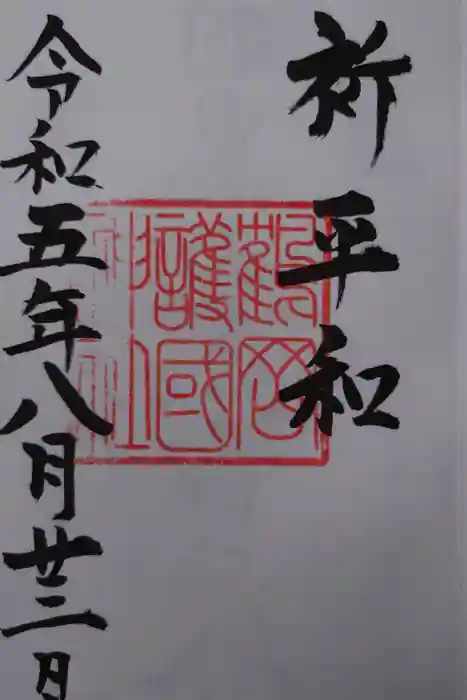 祈平和
鶴岡
護國
神社
令和五年八月廿三日